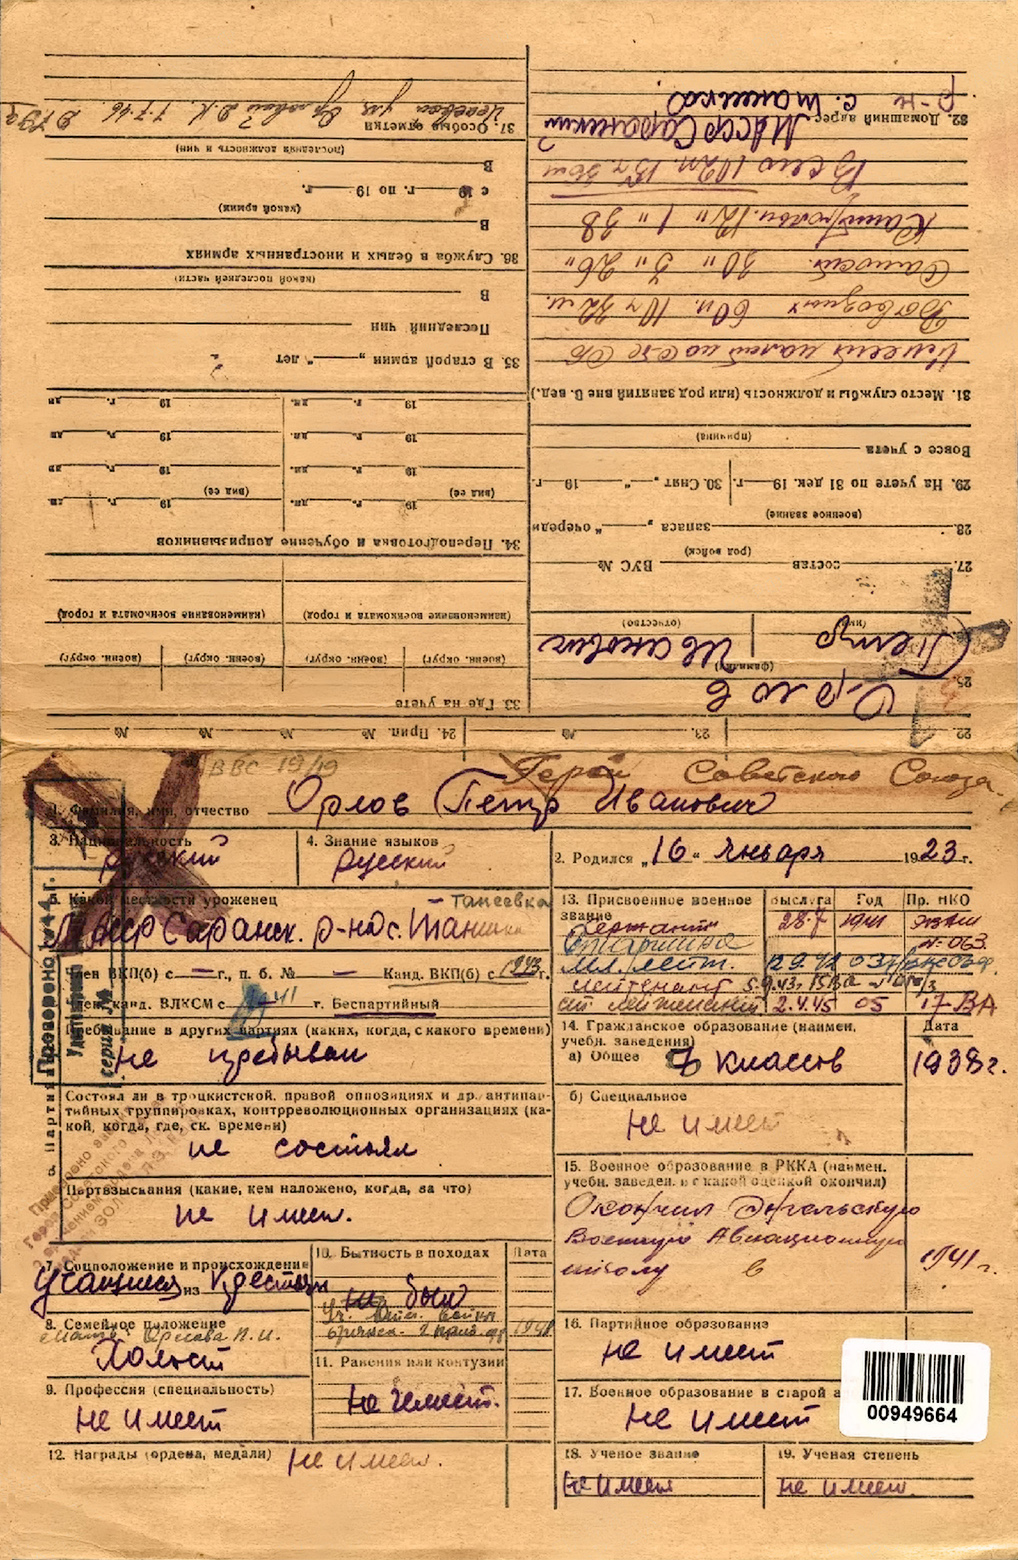 22.
23. №
24. Прип. № № № №
25. Орлов
(фамилия)
Петр Иванович
(имя) (отчество)
27. состав ВУС №
(род войск)
28. запаса „ “ очереди
(военное звание)
29. На учете по 31 дек. 19 г. 30. Снят „ “ 19 г.
Вовсе с учета
(причина)
31. Место службы и должность (или род занятий вне В. вед.)
Имеет налет на с-те СБ
60 п. 10 ч 32 м.
30 " 3 " 26 "
12 " 1 " 38
Всего 102 п. 15 ч. 36 м
32. Домашний адрес МАССР Саранский
р-н с. Танеевка
33. Где на учете
(воен. округ) (воен. округ) (воен. округ) (воен. округ)
(наименование военкомата и город) (наименование военкомата и город)
34. Переподготовка и обучение допризывников
19 г. дн. 19 г. дн
(вид ее) (вид ее)
19 г. дн. 19 г. дн
19 г. дн. 19 г. дн
19 г. дн. 19 г. дн
35. В старой армии „ “ лет
Последний чин
В
(какой последней части)
36. Служба в белых и иностранных армиях
В
(какой армии)
с 19 г. по 19 г.
В
(последняя должность и чин)
37. Особые отметки
Орловой Д.К. 7-7-46
ВВС 19/19
Герой Советского Союза.
1. Фамилия, имя, отчество Орлов Петр Иванович
3. Национальность русский
4. Знание языков русский
2. Родился „16“ января 1923 г.
5. Какой местности уроженец Танеевка
МАССР Саранск. р-на с. Танеевка
6. Партия
Член ВКП(б) с — г., п. б. № — Канд. ВКП(б) с 1943 г.
Член, канд. ВЛКСМ с 1941 г. Беспартийный
Пребывание в других партиях (каких, когда, с какого времени)
не пребывал
Состоял ли в троцкистской, правой оппозициях и др. антипар-
тийных группировках, контрреволюционных организациях (ка-
кой, когда, где, ск. времени)
не состоял
Партвзыскания (какие, кем наложено, когда, за что)
не имел.
7. Соцположение и происхождение
учащийся из крестьян
8. Семейное положение
мать Орлова П. И.
Холост
9. Профессия (специальность)
не имеет
10. Бытность в походах Дата
не был
11. Ранения или контузии
не имеет.
12. Награды (ордена, медали) не имел.
13. Присвоенное военное звание Выслуга Год Пр. НКО
Сержант 28.7 1941 ЭВАШ
Старшина № 063
мл. лейт.
лейтенант 5.9.43г. 15 ВА
ст. лейтенант 2.4.45 05 17 ВА
14. Гражданское образование (наимен. Дата
учебн. заведения)
а) Общее 7 классов 1938 г.
б) Специальное
не имеет
15. Военное образование в РККА (наимен.
учебн. заведен. и с какой оценкой окончил)
Окончил Энгельскую
военную Авиационную
школу в 1941 г.
16. Партийное образование
не имеет
17. Военное образование в старой а
не имеет
18. Ученое звание
не имел
19. Ученая степень
не имел.
Проверено в 44 г.
Удостов. личн.
серия №
00949664